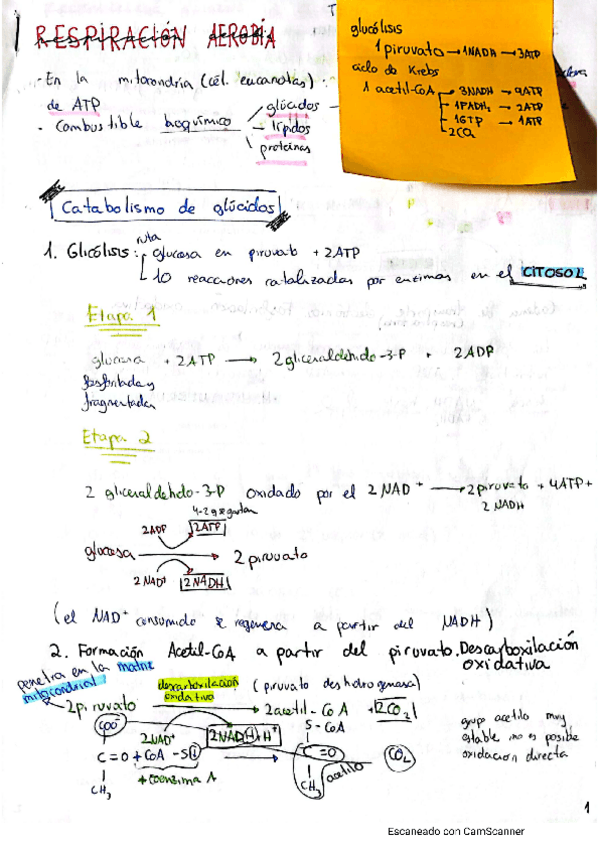 RESPIRACIÓN AEROBIA
-En la mitocondria (cél. eucariotas)
de ATP
· Combustible bioquímico
glúcidos
lípidos
proteinas
glucólisis
1 piruvato → 1NADH → 3ATP
ciclo de Krebs
1 acetil-CoA → 3NADH → 9ATP
1FADH2 → 2ATP
1GTP → 1ATP
2CO2
Catabolismo de glúcidos
ruta
1. Glicólisis: glucosa en piruvato + 2ATP
10 reacciones catalizadas por enzimas en el CITOSOL
Etapa 1
glucosa + 2ATP → 2 gliceraldehido-3-P + 2ADP
fosforilada y
fragmentada
Etapa 2
2 gliceraldehido-3-P oxidado por el 2 NAD+ → 2 piruvato + 4ATP +
2 NADH
4-2 q se gastan
2ADP 2ATP
glucosa → 2 piruvato
2 NAD+ 2 NADH
(el NAD+ consumido se regenera a partir del NADH)
2. Formación Acetil-CoA a partir del piruvato. Descarboxilación
oxidativa
penetra en la matriz
mitocondrial
descarboxilación
oxidativa
(piruvato deshidrogenasa)
2 piruvato → 2 acetil-CoA + 2CO2
COO⁻ S-CoA
2NAD+ 2NADH + H+
C=O + CoA-SH C=O CO2
+ coenzima A
CH3 CH3 acetilo
grupo acetilo muy
estable no es posible
oxidacion directa
1
Escaneado con CamScanner